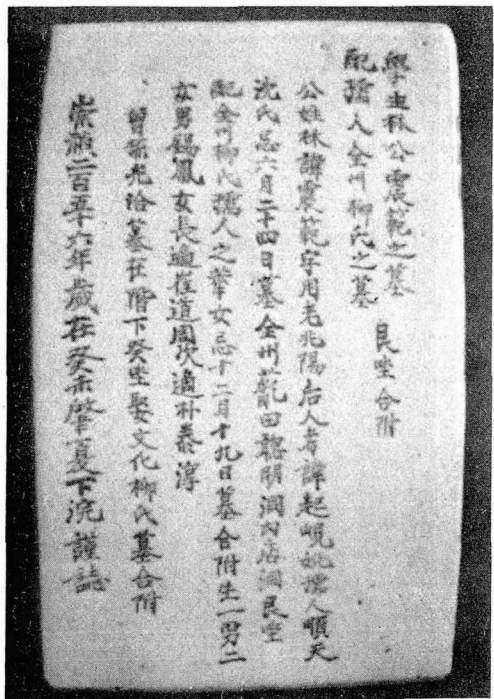 學生林公震範之墓
配孺人全州柳氏之墓 艮坐合附
公姓林諱震範字用毛兆陽后人考諱起峴妣孺人順天
沈氏忌六月二十四日墓全州龍田龍朋洞內店洞艮坐
配全州柳氏孺人之筆女忌十二月十九日墓合附生一男二
女男錫鳳女長適崔道周次適朴泰淳
曾孫光洽墓在階下癸坐娶文化柳氏墓合附
崇禎二百五十六年歲在癸未肇夏下浣謹誌